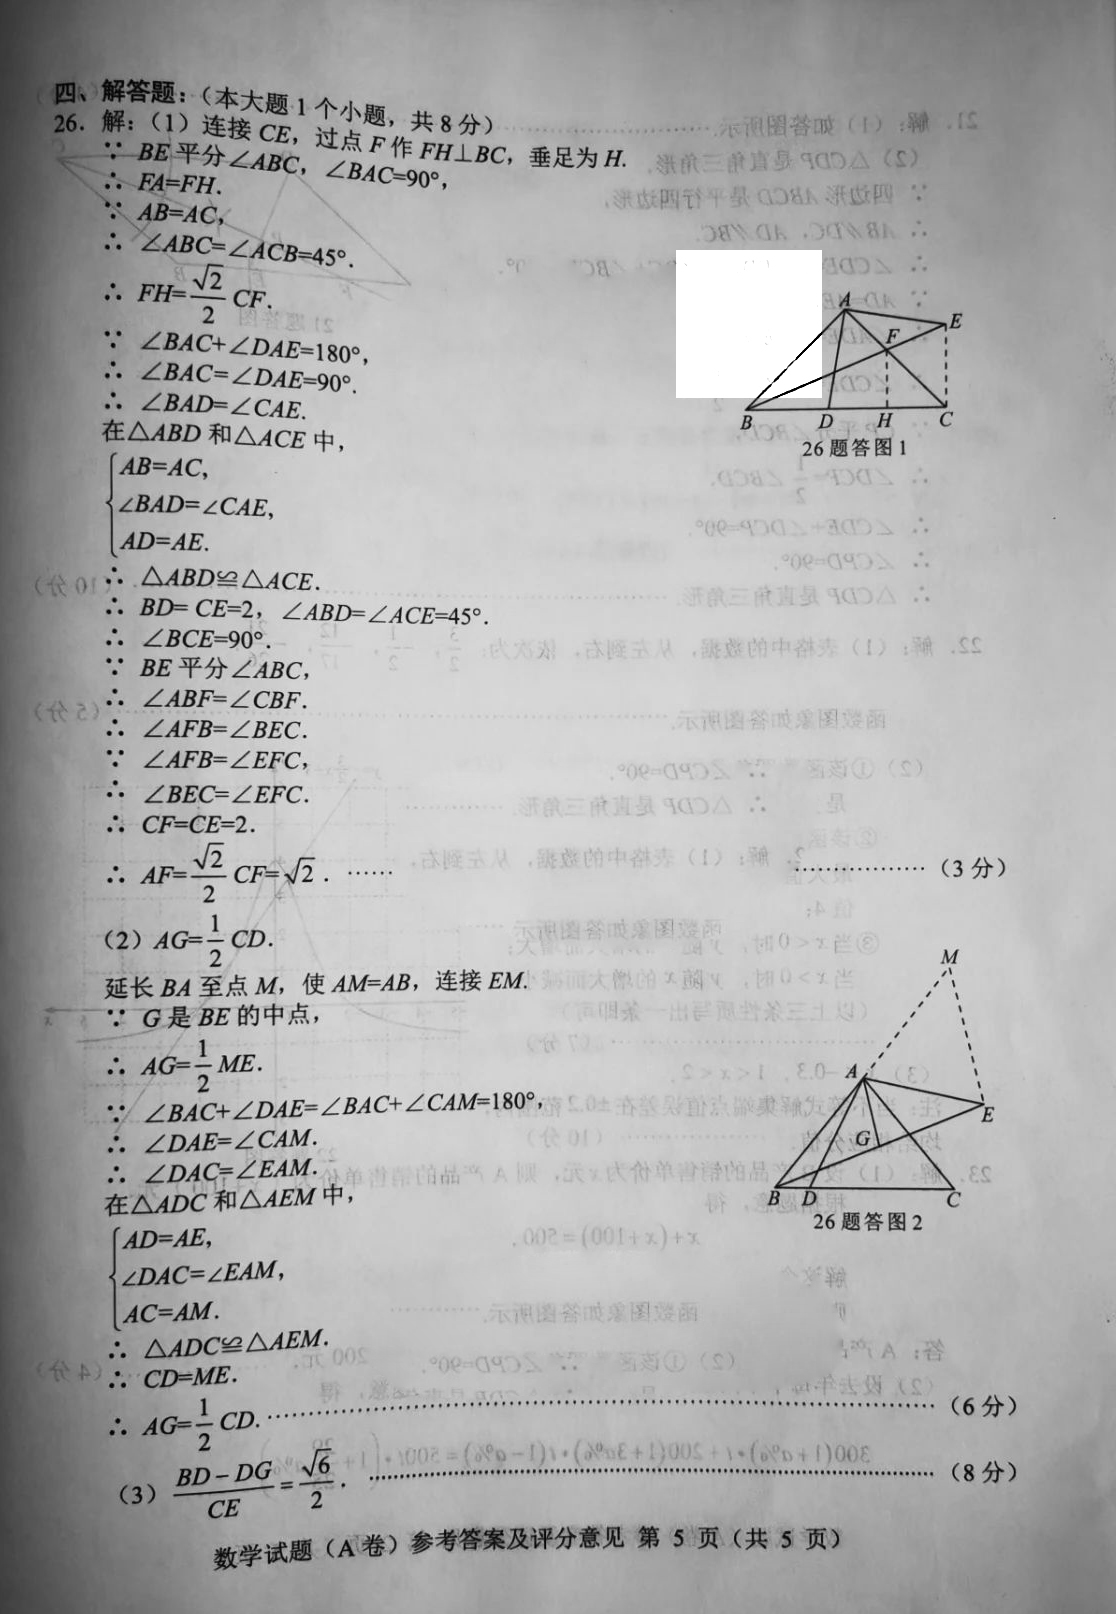 四、解答题：（本大题 1 个小题，共 8 分）
26．解：（1）连接 CE，过点 F 作 FH⊥BC，垂足为 H.
∵ BE 平分∠ABC，∠BAC=90°，
∴ FA=FH.
∵ AB=AC，
∴ ∠ABC=∠ACB=45°.
∴ FH=√2/2 CF.
∵ ∠BAC+∠DAE=180°，
∴ ∠BAC=∠DAE=90°.
∴ ∠BAD=∠CAE.
在△ABD 和△ACE 中，
AB=AC,
∠BAD=∠CAE,
AD=AE.
∴ △ABD≌△ACE.
∴ BD= CE=2，∠ABD=∠ACE=45°.
∴ ∠BCE=90°.
∵ BE 平分∠ABC，
∴ ∠ABF=∠CBF.
∴ ∠AFB=∠BEC.
∵ ∠AFB=∠EFC，
∴ ∠BEC=∠EFC.
∴ CF=CE=2.
∴ AF=√2/2 CF=√2．……………………（3 分）
A
E
F
B
D
H
C
26 题答图 1
（2）AG=1/2 CD.
延长 BA 至点 M，使 AM=AB，连接 EM.
∵ G 是 BE 的中点，
∴ AG=1/2 ME.
∵ ∠BAC+∠DAE=∠BAC+∠CAM=180°，
∴ ∠DAE=∠CAM.
∴ ∠DAC=∠EAM.
在△ADC 和△AEM 中，
AD=AE,
∠DAC=∠EAM,
AC=AM.
∴ △ADC≌△AEM.
∴ CD=ME.
∴ AG=1/2 CD.……………………（6 分）
M
A
E
G
B
D
C
26 题答图 2
（3）(BD－DG)/CE=√6/2．……………………（8 分）
数学试题（A 卷）参考答案及评分意见 第 5 页（共 5 页）